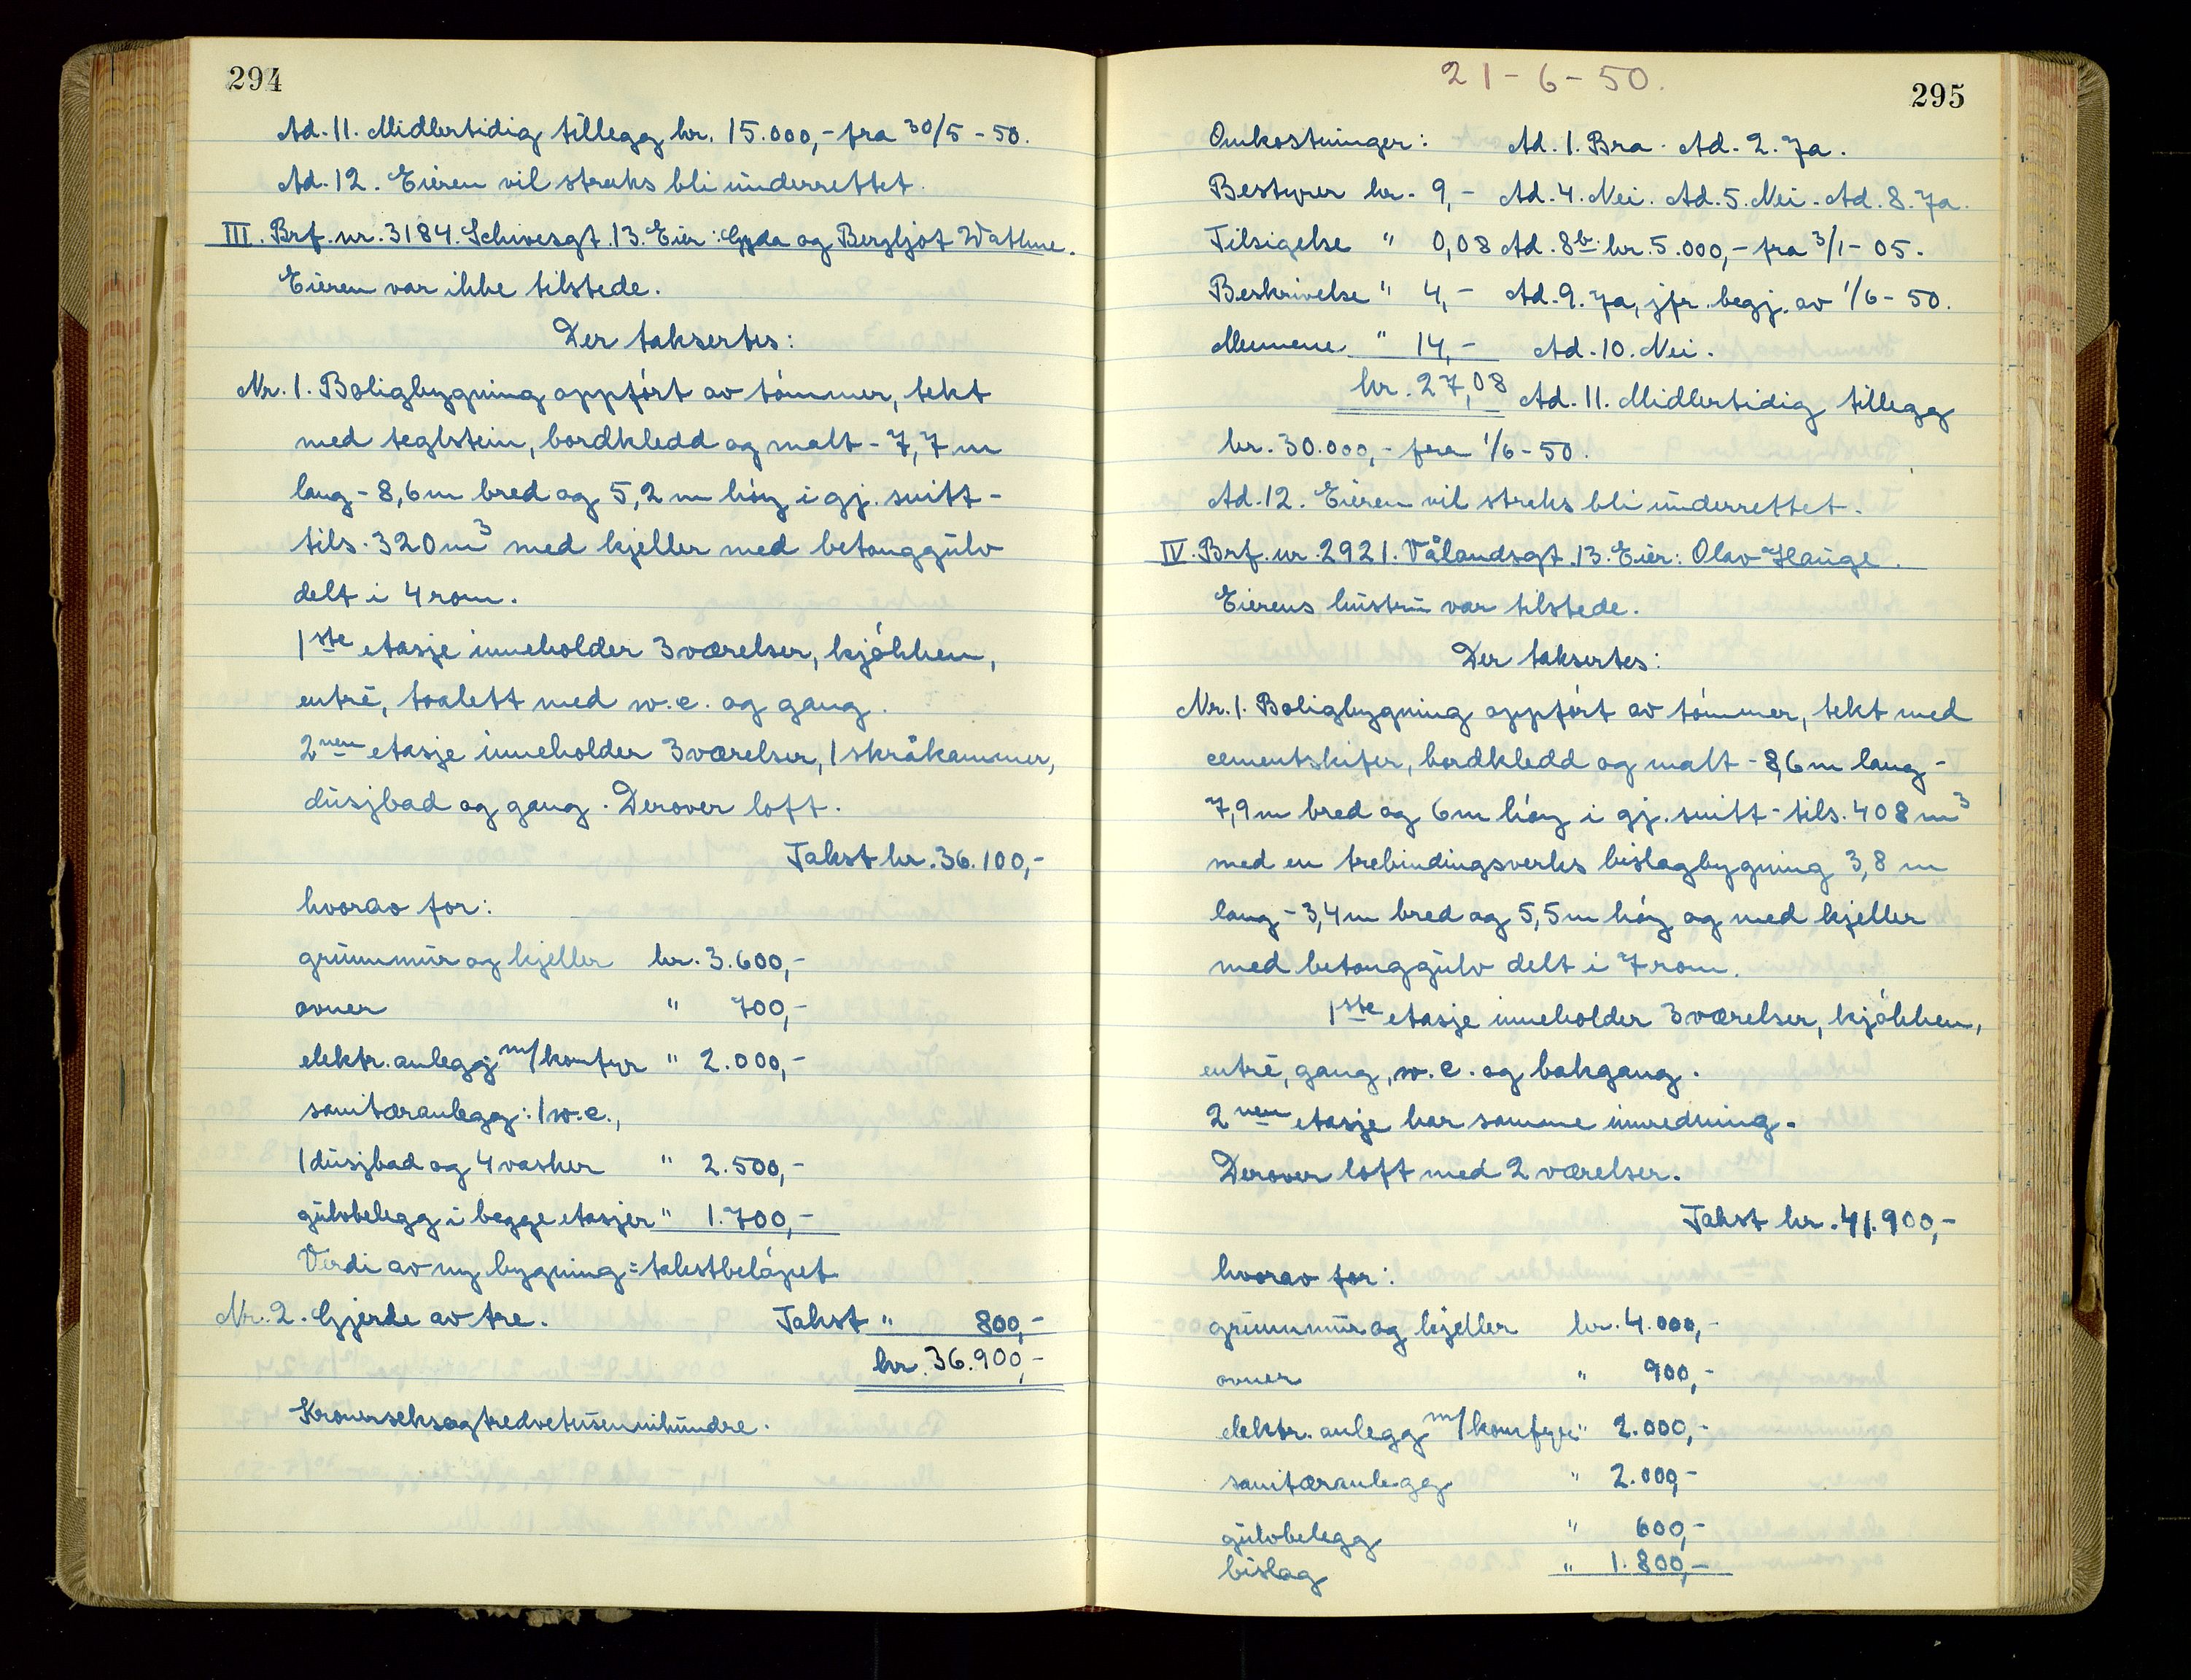 294
Ad. 11. Midlertidig tillegg kr. 15.000,- fra 30/5 - 50.
Ad. 12. Eieren vil straks bli underrettet.
III. Brf. nr. 3184. Schivesgt. 13. Eier: Gyda og Bergljot Wathne.
Eieren var ikke tilstede.
Der taksertes:
Nr. 1. Boligbygning oppført av tømmer, tekt
med teglstein, bordkledd og malt - 7,7 m
lang - 8,6 m bred og 5,2 m høy i gj. snitt -
tils. 320 m³ med kjeller med betonggulv
delt i 4 rom.
1ste etasje inneholder 3 værelser, kjøkken,
entré, toalett med w.c. og gang.
2nen etasje inneholder 3 værelser, 1 skråkammer,
dusjbad og gang. Derover loft.
Takst kr. 36.100,-
hvorav for:
grunnmur og kjeller kr. 3.600,-
ovner " 700,-
elektr. anlegg m/komfyr " 2.000,-
sanitæranlegg: 1 w.c.,
1 dusjbad og 4 vasker " 2.500,-
gulvbelegg i begge etasjer " 1.700,-
Verdi av ny bygning = takstbeløpet
Nr. 2. Gjerde av tre. Takst " 800,-
kr. 36.900,-
Kronerseksogtredvetusennihundre.
21 - 6 - 50.
295
Omkostninger: Ad. 1. Bra. Ad. 2. Ja.
Bestyrer kr. 9,- Ad. 4. Nei. Ad. 5. Nei. Ad. 8. Ja.
Tilsigelse " 0,08 Ad. 8b. kr. 5.000,- fra 3/1 - 05.
Beskrivelse " 4,- Ad. 9. Ja, jfr. begj. av 1/6 - 50.
Mennene " 14,- Ad. 10. Nei.
kr. 27,08 Ad. 11. Midlertidig tillegg
kr. 30.000,- fra 1/6 - 50.
Ad. 12. Eieren vil straks bli underrettet.
IV. Brf. nr. 2921. Vålandsgt. 13. Eier: Olav Hauge.
Eierens hustru var tilstede.
Der taksertes:
Nr. 1. Boligbygning oppført av tømmer, tekt med
cementskifer, bordkledd og malt - 8,6 m lang -
7,9 m bred og 6 m høy i gj. snitt - tils. 408 m³
med en trebindingsverks bislagbygning 3,8 m
lang - 3,4 m bred og 5,5 m høy og med kjeller
med betonggulv delt i 7 rom.
1ste etasje inneholder 3 værelser, kjøkken,
entré, gang, w.c. og bakgang.
2nen etasje har samme innredning.
Derover loft med 2 værelser.
Takst kr. 41.900,-
hvorav for:
grunnmur og kjeller kr. 4.000,-
ovner " 900,-
elektr. anlegg m/komfyr " 2.000,-
sanitæranlegg " 2.000,-
gulvbelegg " 600,-
bislag " 1.800,-